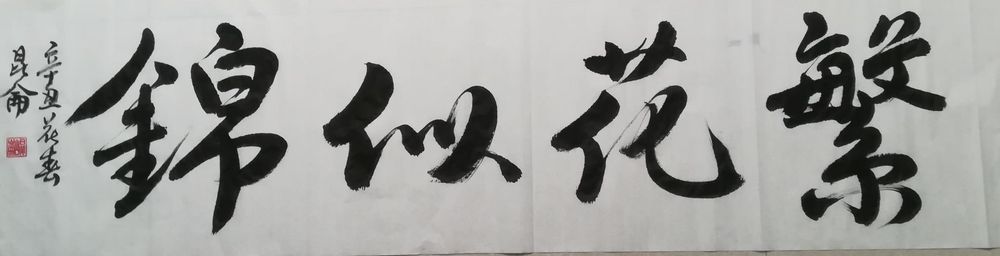 繁花似錦
辛丑花春
昆侖